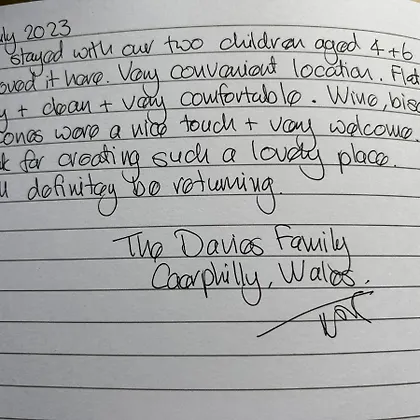 uly 2023
stayed with our two children aged 4+6
oved it here. Very convenient location. Flat
y + clean + very comfortable. Wine, bisc
ones were a nice touch + very welcome.
k for creating such a lovely place.
ll definitey be returning.
The Davies Family
Caerphilly, Wales.